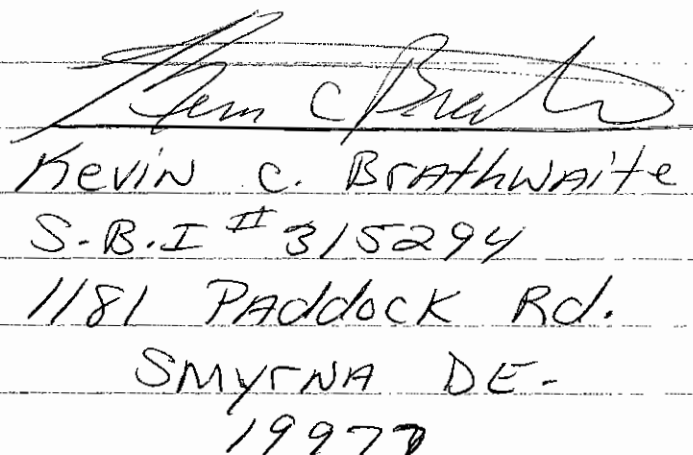 Kevin C Brath
Kevin C. Brathwaite
S.B.I # 315294
1181 Paddock Rd.
Smyrna DE.
19977